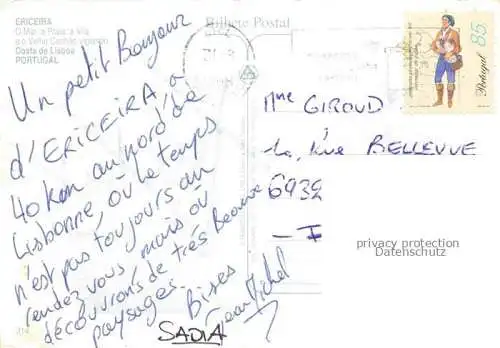 ERICEIRA
O Mar, a Praia, a Vila
e o Velho Canhão vigiando
Costa de Lisboa
PORTUGAL
Bilhete Postal
Portugal 85
Un petit Bonjour
d'ERICEIRA, a
40 km au nord de
Lisbonne, où le temps
n'est pas toujours au
rendez vous mais où
découvrons de très Beaux
paysages.
Bises
Jean Michel
SADIA
Mme GIROUD
Rue BELLEVUE
privacy protection
Datenschutz